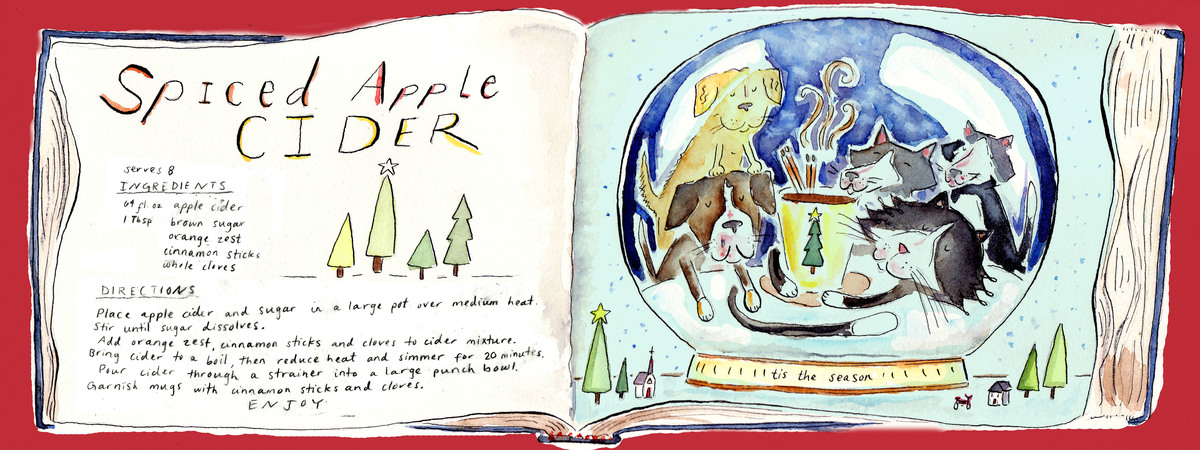 Spiced Apple
CIDER
serves 8
INGREDIENTS
64 fl. oz apple cider
1 Tbsp brown sugar
orange zest
cinnamon sticks
whole cloves
DIRECTIONS
Place apple cider and sugar in a large pot over medium heat.
Stir until sugar dissolves.
Add orange zest, cinnamon sticks and cloves to cider mixture.
Bring cider to a boil, then reduce heat and simmer for 20 minutes.
Pour cider through a strainer into a large punch bowl.
Garnish mugs with cinnamon sticks and cloves.
ENJOY
'tis the season